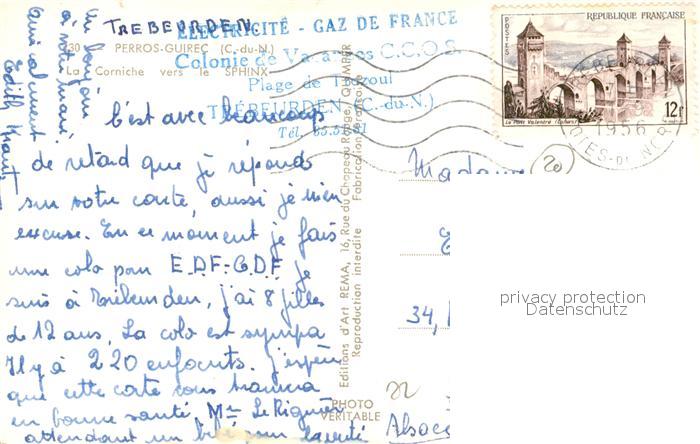 TREBEURDEN
ELECTRICITÉ - GAZ DE FRANCE
Colonie de Vacances C.C.O.S
Plage de Trozoul
TRÉBEURDEN (C.-du-N.)
Tél.
30 PERROS-GUIREC (C.-du-N.)
La Corniche vers le SPHINX
C'est avec beaucoup
de retard que je réponds
sur votre carte, aussi je m'en
excuse. En ce moment je fais
une colo pour E.D.F-G.D.F. je
suis à Trébeurden, j'ai 8 filles
de 12 ans. La colo est sympa
Il y a 220 enfants. J'espère
que cette carte vous trouvera
en bonne santé. Mme Le Riguier
attendant un bébé pour
un bonjour
à votre mari
Amicalement
Edith
Editions d'Art REMA, 16, Rue du Chapeau Rouge, QUIMPER
Reproduction interdite Fabrication française
PHOTO
VERITABLE
POSTES
REPUBLIQUE FRANÇAISE
Le Pont Valentré (Cahors)
12F
1956
COTES-DU-NORD
20
Madame
34,
22
Alsace
privacy protection
Datenschutz